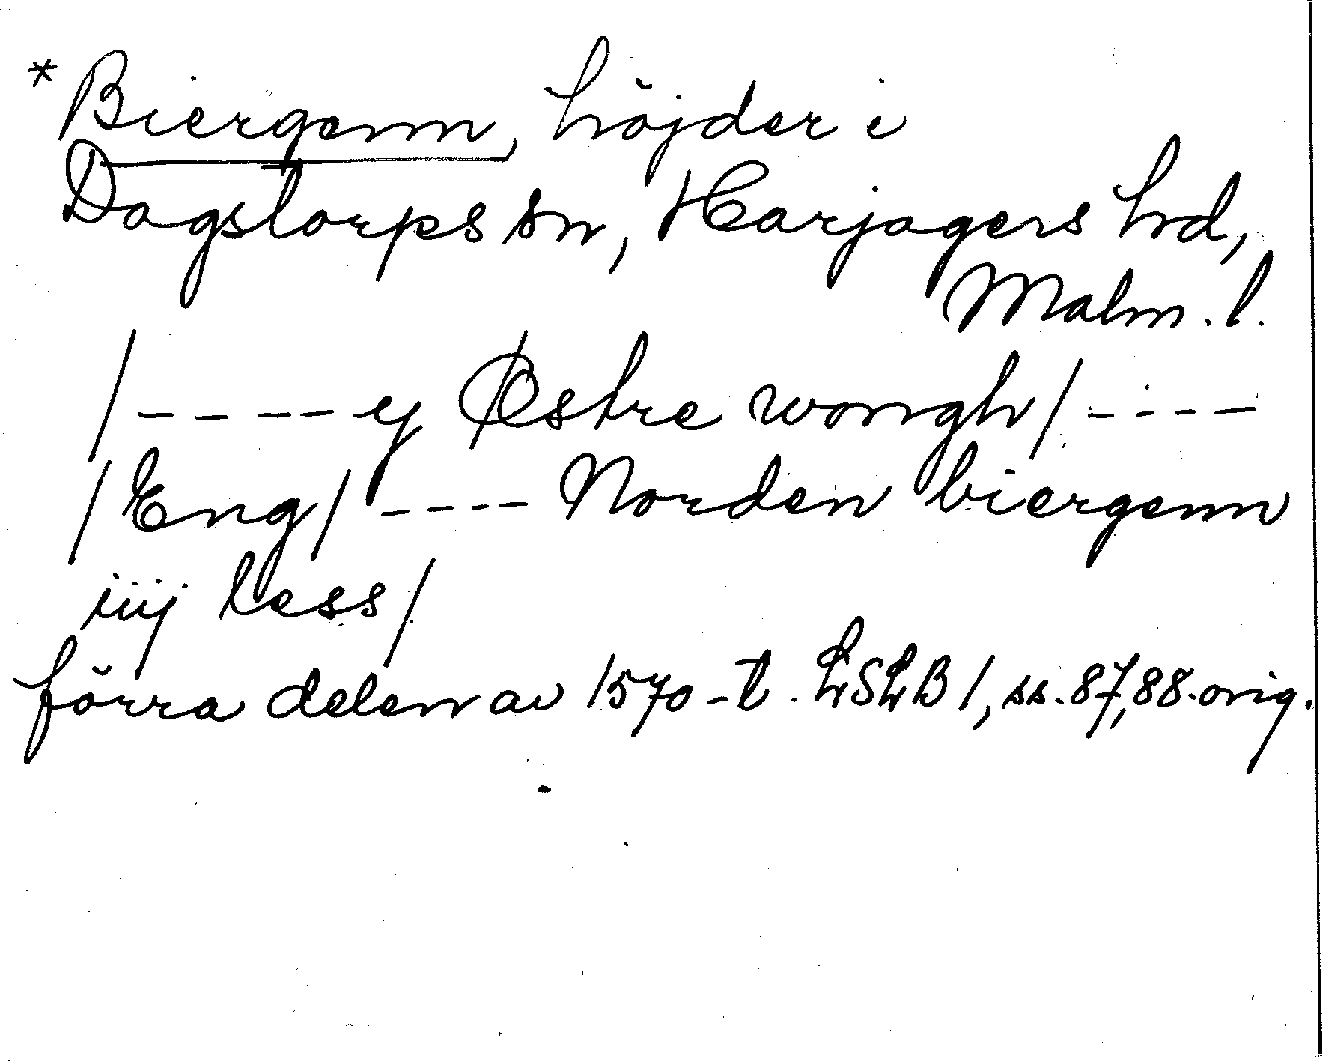 *Biergenn, höjder i
Dagstorps sn, Harjagers hd,
Malm. l.
/-----ij Østre wongh/----
/Eng/---- Norden biergenn
iiij less/
förra delen av 1570-t. LSLB 1, ss. 87, 88. orig.